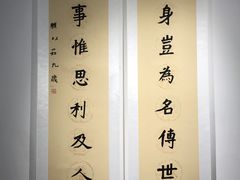 身豈為名傳世
事惟思利及人